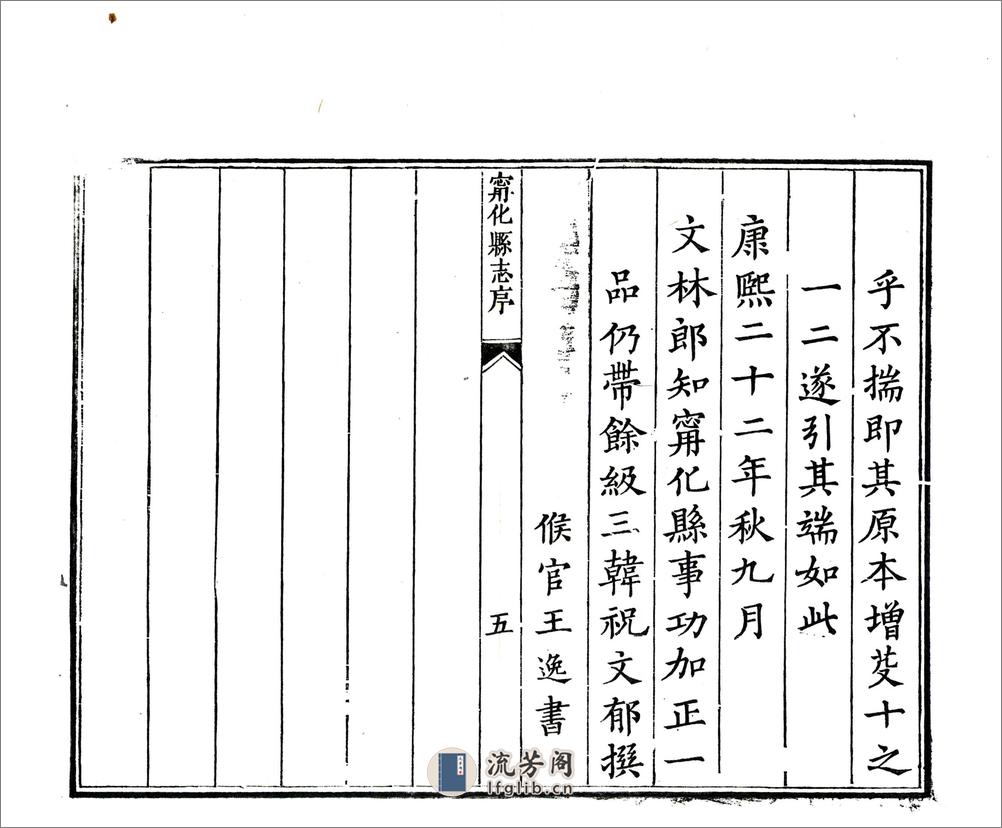 乎不揣即其原本增芟十之
一二遂引其端如此
康熙二十二年秋九月
文林郎知甯化縣事功加正一
品仍帶餘級三韓祝文郁撰
候官王逸書
甯化縣志序
五
流芳阁
lfglib.cn